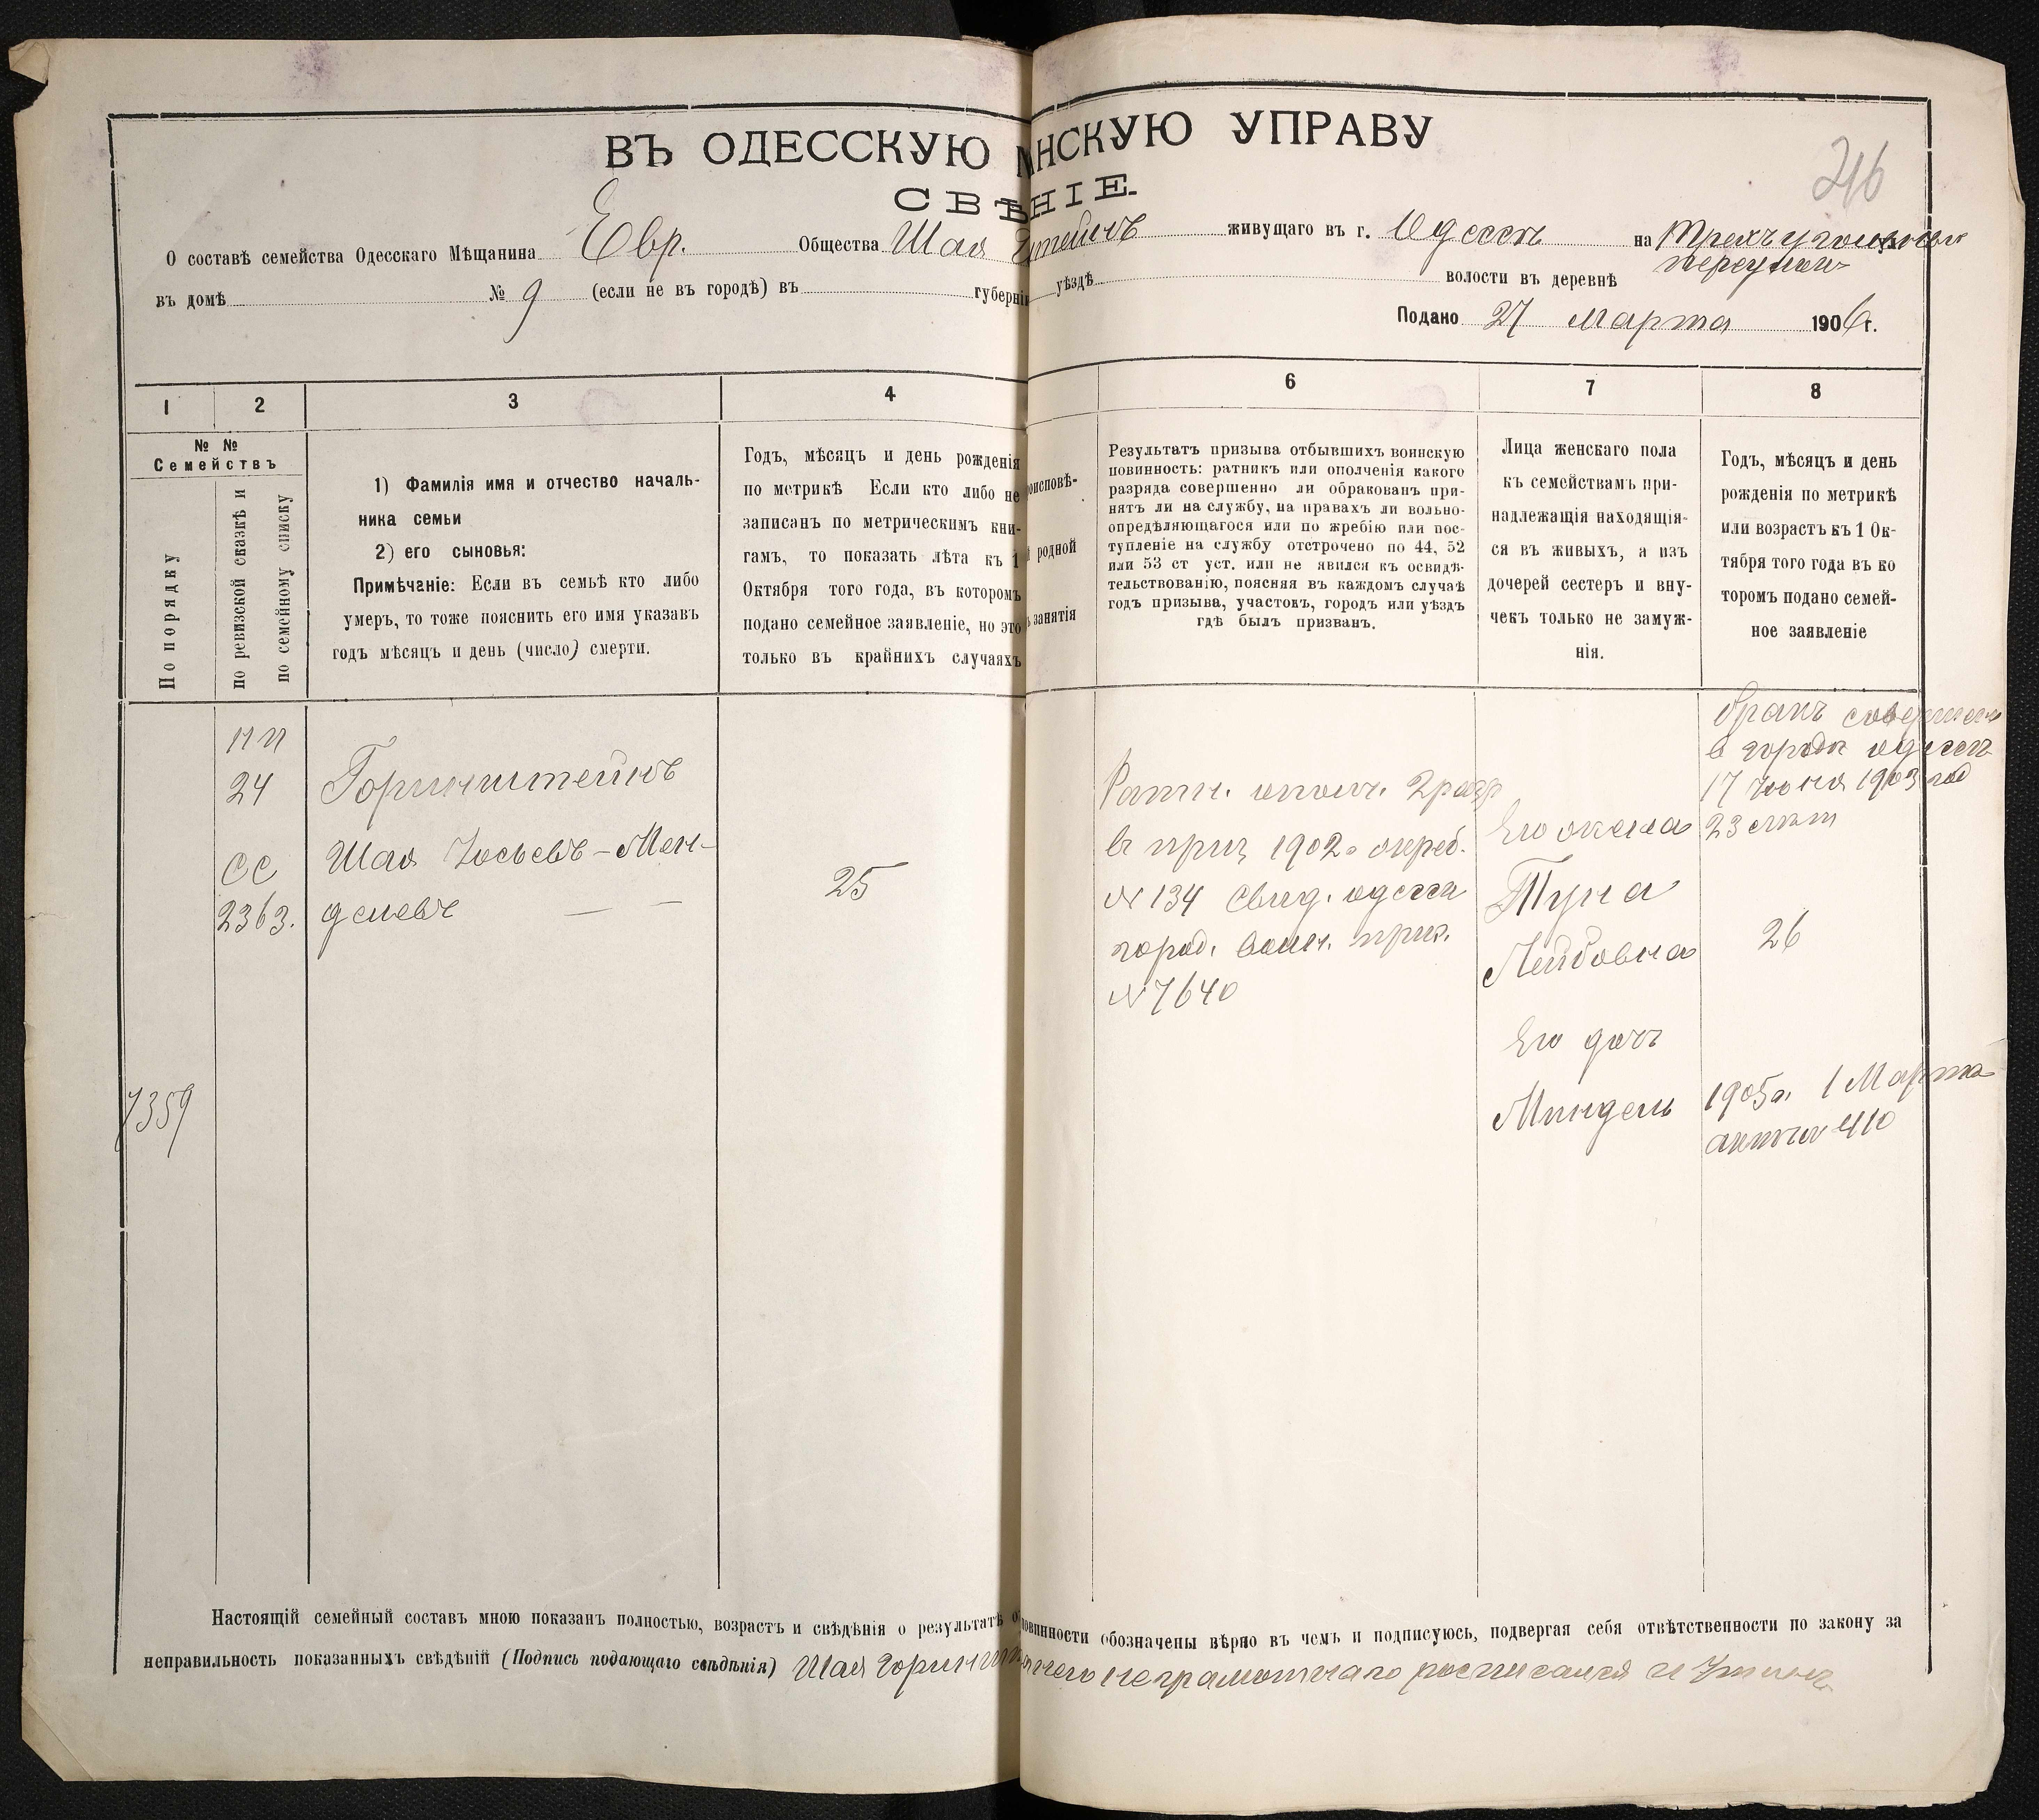 ВЪ ОДЕССКУЮ НСКУЮ УПРАВУ
СВѢНІЕ.
246
О составѣ семейства Одесскаго Мѣщанина Евр. Общества Шая штейнъ живущаго въ г. Одессѣ на Трехъугольномъ
переулкѣ
въ домѣ № 9 (если не въ городѣ) въ губерні уѣздѣ волости въ деревнѣ
Подано 27 Марта 1906 г.
1 2 3 4 6 7 8
№ №
Семействъ
По порядку
по ревизской сказкѣ и
по семейному списку
1) Фамилія имя и отчество началь-
ника семьи
2) его сыновья:
Примѣчаніе: Если въ семьѣ кто либо
умеръ, то тоже пояснить его имя указавъ
годъ мѣсяцъ и день (число) смерти.
Годъ, мѣсяцъ и день рожденія
по метрикѣ Если кто либо не
записанъ по метрическимъ кни-
гамъ, то показать лѣта къ 1
Октября того года, въ которомъ
подано семейное заявленіе, но это
только въ крайнихъ случаяхъ
оисповѣ-
родной
занятія
Результатъ призыва отбывшихъ воинскую
повинность: ратникъ или ополченія какого
разряда совершенно ли обракованъ при-
нятъ ли на службу, на правахъ ли вольно-
опредѣляющагося или по жребію или пос-
тупленіе на службу отстрочено по 44, 52
или 53 ст уст. или не явился къ освидѣ-
тельствованію, поясняя въ каждомъ случаѣ
годъ призыва, участокъ, городъ или уѣздъ
гдѣ былъ призванъ.
Лица женскаго пола
къ семействамъ при-
надлежащія находящія-
ся въ живыхъ, а изъ
дочерей сестеръ и вну-
чекъ только не замуж-
нія.
Годъ, мѣсяцъ и день
рожденія по метрикѣ
или возрастъ къ 1 Ок-
тября того года въ ко
торомъ подано семей-
ное заявленіе
24
СС
2363.
7359
Горинштейнъ
Шая Іосьевъ-Мен-
делевъ — —
25
Ратн. ополч. 2 разр
в приз 1902 г жреб.
№ 134 Свид. одесса
город. воин. прис.
№ 7640
Его жена
Туна
Лейбовна
Его дочь
Миндель
бракъ совершен
в городѣ одессѣ
17 Июня 1903 год
23 лѣт
26
1905 г. 1 Марта
410
Настоящій семейный составъ мною показанъ полностью, возрастъ и свѣдѣнія о результатѣ о повинности обозначены вѣрно въ чемъ и подписуюсь, подвергая себя отвѣтственности по закону за
неправильность показанныхъ свѣдѣній (Подпись подающаго свѣдѣнія) Шая Горинш него неграмотнаго росписался